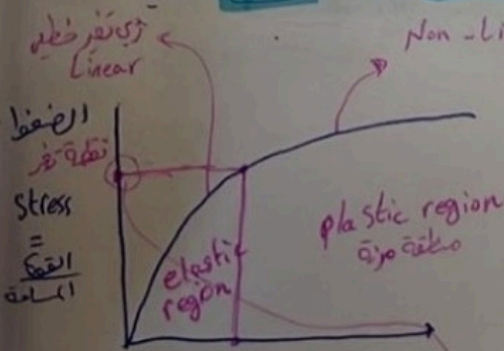 Linear
Non-Li
الضغط
نقطة
stress
=
القوة
المساحة
elastic
region
plastic region
منطقة مرنة